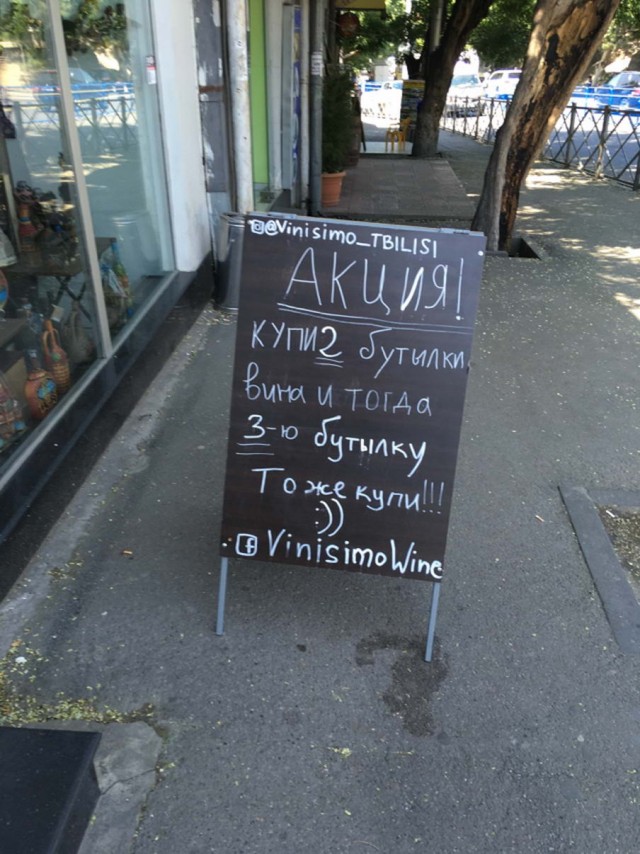 @Vinisimo_TBILISI
АКЦИЯ!
КУПИ 2 бутылки
вина и тогда
3-ю бутылку
Тоже купи!!!
:))
VinisimoWine